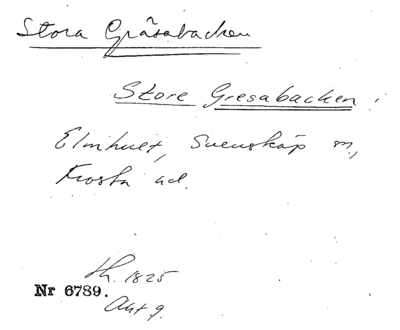 Stora Gräsabacken
Store Gresabacken.
Elmhult, Svenskåp sn,
Frosta hd.
Lh. 1825
Nr 6789.
Akt 9.